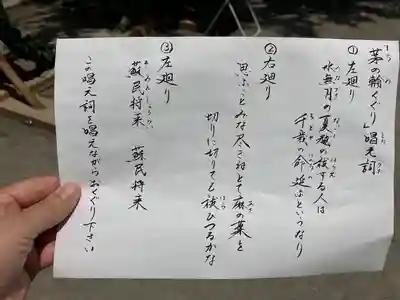 茅の輪くぐり」唱え詞
① 左廻り
水無月の夏越の祓する人は
千歳の命延ぶというなり
② 右廻り
思ふことみな尽きねとて麻の葉を
切りに切りても祓ひつるかな
③ 左廻り
蘇民将来 蘇民将来
この唱え詞を唱えながらおくぐり下さい